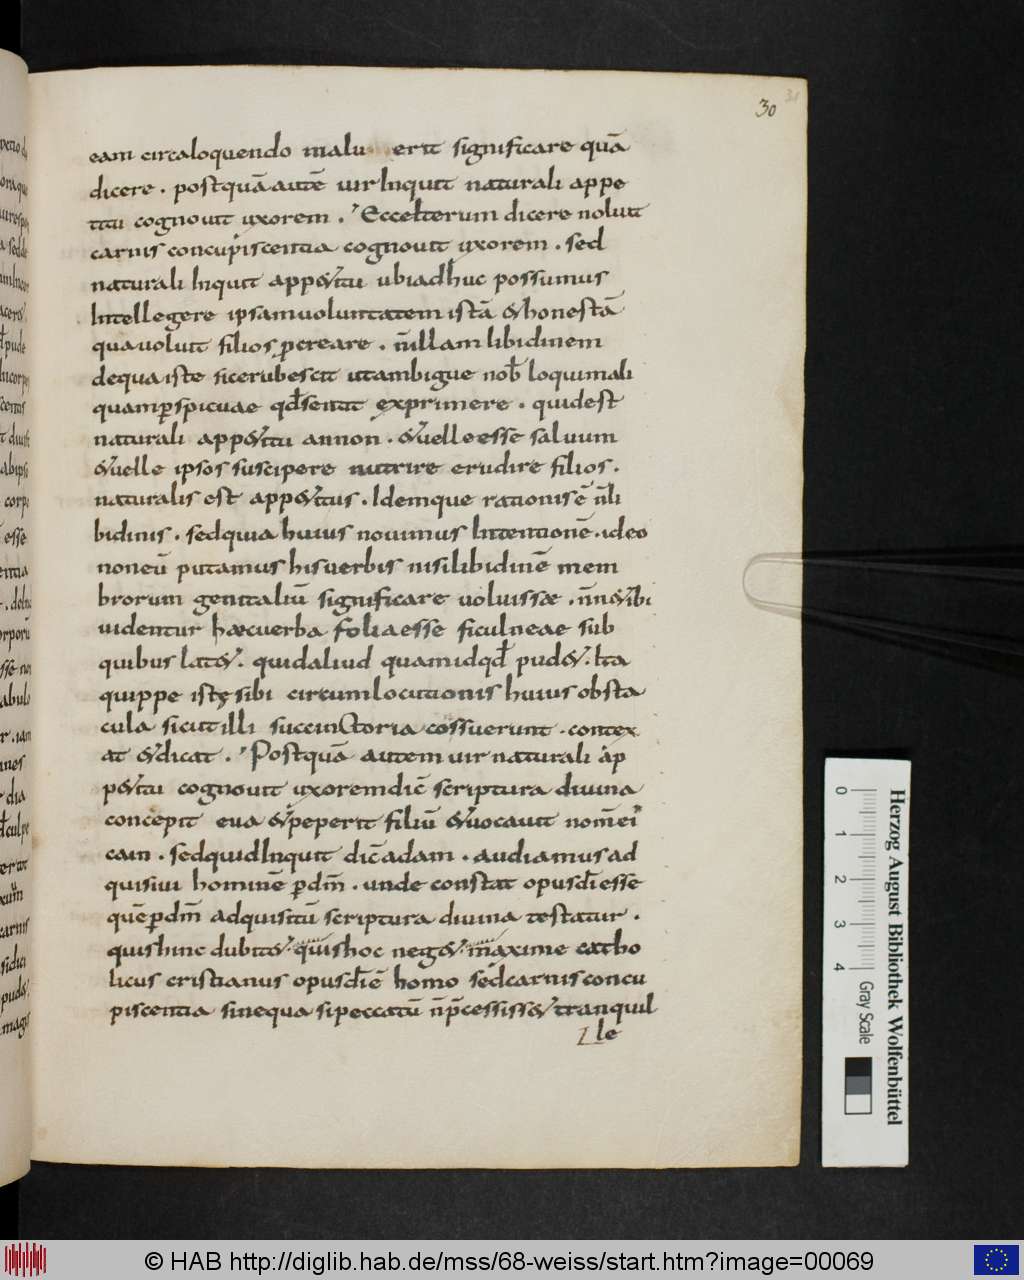 30
eam circaloquendo malu erit significare quā
dicere . postquā autē uir inquit naturali appe
titu cognouit uxorem . Ecce iterum dicere noluit
carnis concupiscentia cognouit uxorem . sed
naturali inquit app&itu ubi adhuc possumus
Intellegere ipsam uoluntatem istā & honestā
qua uoluit filios percreare . n̄ illam libidinem
de qua iste sic erubescit ut ambigue nob̄ loqui mali
quam perspicuae qđ sentit exprimere . quid est
naturali app&itu an non . & uelle esse saluum
& uelle ipsos suscipere nutrire erudire filios .
naturalis est app&itus . Idemque rationis ē n̄ li
bidinis . sed quia huius nouimus Intentionē . ideo
non eū putamus his uerbis nisi libidinē mem
brorum genitaliū significare uoluisse . n̄n & ibi
uidentur haec uerba folia esse ficulneae sub
quibus lat& . quid aliud quam id qđ pud& . Ita
quippe istę sibi circumlocutionis huius obsta
cula sicut illi succinctoria cossuerunt . contex
at & dicat . Postquā autem uir naturali ap
p&itu cognouit uxorem dic̄ scriptura diuina
concepit eua & peperit filiū & uocauit nom̄ ei
cain . sed quid Inquit dic̄ adam . audiamus ad
quisiui hominē p dm̄ . unde constat opus di esse
quē p dm̄ adquisitū scriptura diuina testatur .
quis hinc dubit& . quis hoc neg& . maxime catho
licus cristianus opus di ē homo sed carnis concu
piscentia sine qua si peccatū n̄ p̄cessiss& tranquil
le
0
1
2
3
4
Gray Scale
Herzog August Bibliothek Wolfenbüttel
© HAB http://diglib.hab.de/mss/68-weiss/start.htm?image=00069